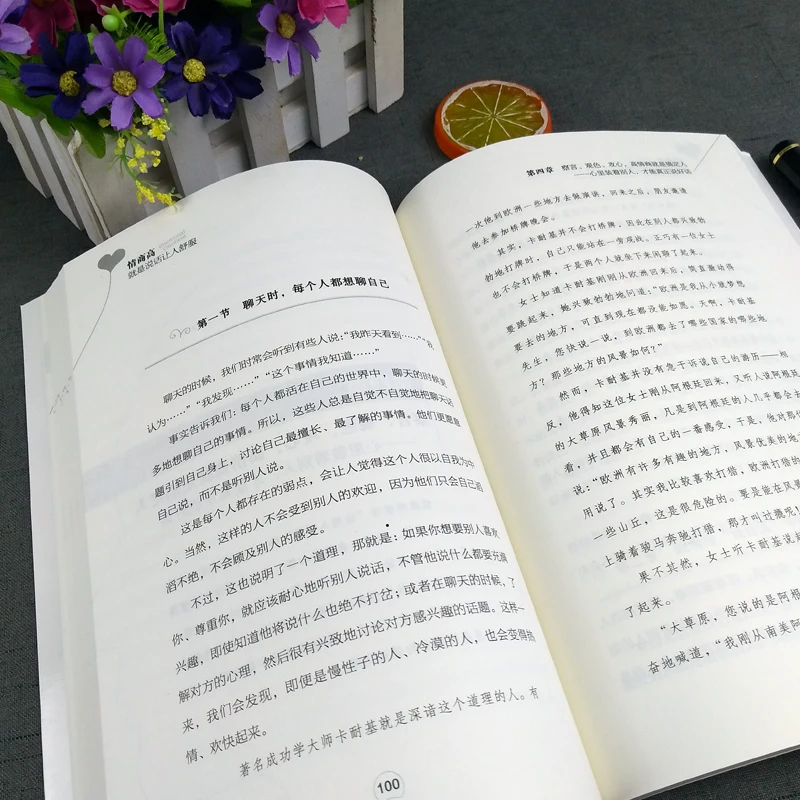 情商高
就是说话让人舒服
第一节 聊天时，每个人都想聊自己
聊天的时候，我们时常会听到有些人说：“我昨天看到……”“我
认为……”“我发现……”“这个事情我知道……”
事实告诉我们：每个人都活在自己的世界中，聊天的时候更
多地想聊自己的事情。所以，这些人总是自觉不自觉地把聊天话
题引到自己身上，讨论自己最擅长、最了解的事情。他们更愿意
自己说，而不是听别人说。
这是每个人都存在的弱点，会让人觉得这个人很以自我为中
心。当然，这样的人不会受到别人的欢迎，因为他们只会自己滔
滔不绝，不会顾及别人的感受。
不过，这也说明了一个道理，那就是：如果你想要别人喜欢
你、尊重你，就应该耐心地听别人说话，不管他说什么都要充满
兴趣，即使知道他将说什么也绝不打岔；或者在聊天的时候，了
解对方的心理，然后很有兴致地讨论对方感兴趣的话题。这样一
来，我们会发现，即便是慢性子的人、冷漠的人，也会变得热
情、欢快起来。
著名成功学大师卡耐基就是深谙这个道理的人。有
100
第四章 察言，观色，攻心，高情商就是搞定人
——心里装着别人，才能真正说好话
一次他到欧洲一些地方去做演讲，回来之后，朋友邀请
他去参加桥牌晚会。
其实，卡耐基并不会打桥牌，因此在别人都兴致勃
勃地打牌时，自己只能站在一旁观战。正巧有一位女士
也不会打桥牌，于是两个人就坐下来闲聊了起来。
女士知道卡耐基刚刚从欧洲回来后，简直激动得
要跳起来，她兴致勃勃地问道：“欧洲是我从小就梦想
要去的地方，可直到现在都没能如愿。天啊，卡耐基
先生，您快说一说，到欧洲都去了哪些国家的哪些地
方？那些地方的风景如何？”
然而，卡耐基并没有急于诉说自己的事历——相
反，他得知这位女士刚从阿根廷回来，又听人说阿根廷
的大草原风景秀丽，凡是到阿根廷的人几乎都会去
看，并且都会有自己的一番感受，于是，他对那位
说：“欧洲有许多有趣的地方，风景优美的地方
用说了。其实我比较喜欢打猎，欧洲打猎的
一些山丘，这是很危险的。要是能在大草
上骑着骏马奔驰打猎，那才叫过瘾呢！
果不其然，女士听卡耐基说起
了起来。
“大草原，您说的是阿根
奋地喊道，“我刚从南美阿